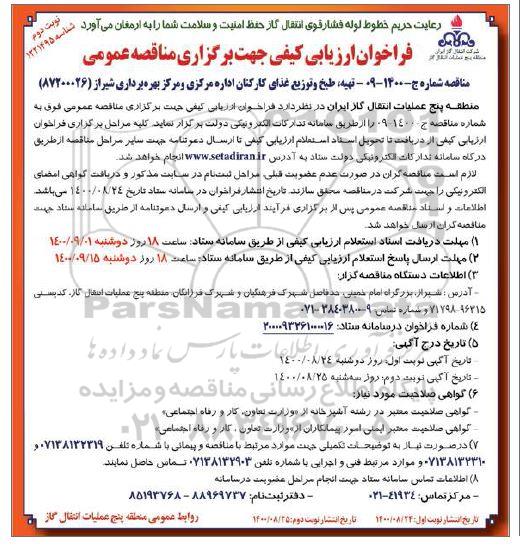 رعایت حریم خطوط لوله فشار قوی انتقال گاز حفظ امنیت و سلامت شما را به ارمغان می‌آورد
نوبت دوم
شناسه ۱۲۲۱۴۹۵
شرکت انتقال گاز ایران
منطقه پنج عملیات انتقال گاز
فراخوان ارزیابی کیفی جهت برگزاری مناقصه عمومی
مناقصه شماره ج-۱۴۰۰-۰۹ - تهیه، طبخ و توزیع غذای کارکنان اداره مرکزی و مرکز بهره‌برداری شیراز (۸۷۲۰۰۰۲۶)
منطقه پنج عملیات انتقال گاز ایران در نظر دارد فراخوان ارزیابی کیفی جهت برگزاری مناقصه عمومی فوق به
شماره مناقصه ج-۱۴۰۰-۰۹ را از طریق سامانه تدارکات الکترونیکی دولت برگزار نماید. کلیه مراحل برگزاری فراخوان
ارزیابی کیفی از دریافت تا تحویل اسناد استعلام ارزیابی کیفی تا ارسال دعوتنامه جهت سایر مراحل مناقصه از طریق
درگاه سامانه تدارکات الکترونیکی دولت ستاد به آدرس www.setadiran.ir انجام خواهد شد.
لازم است مناقصه‌گران در صورت عدم عضویت قبلی، مراحل ثبت‌نام در سایت مذکور و دریافت گواهی امضای
الکترونیکی را جهت شرکت در مناقصه محقق سازند. تاریخ انتشار فراخوان در سامانه ستاد تاریخ ۱۴۰۰/۰۸/۲۴ می‌باشد.
اطلاعات و اسناد مناقصه عمومی پس از برگزاری فرآیند ارزیابی کیفی و ارسال دعوتنامه از طریق سامانه ستاد جهت
مناقصه‌گران ارسال خواهد شد.
۱) مهلت دریافت اسناد استعلام ارزیابی کیفی از طریق سامانه ستاد: ساعت ۱۸ روز دوشنبه ۱۴۰۰/۰۹/۰۱
۲) مهلت ارسال پاسخ استعلام ارزیابی کیفی از طریق سامانه ستاد: ساعت ۱۸ روز دوشنبه ۱۴۰۰/۰۹/۱۵
۳) اطلاعات دستگاه مناقصه‌گزار:
- آدرس: شیراز، بزرگراه امام خمینی، حدفاصل شهرک فرهنگیان و شهرک فرزانگان، منطقه پنج عملیات انتقال گاز، کدپستی
۹۶۳۱۵-۷۱۷۹۸ و شماره تماس ۹-۳۸۴۰۳۸۰۰-۰۷۱
۴) شماره فراخوان در سامانه ستاد: ۲۰۰۰۰۹۳۲۶۱۰۰۰۰۱۶
۵) تاریخ درج آگهی:
- تاریخ آگهی نوبت اول: روز دوشنبه ۱۴۰۰/۰۸/۲۴
- تاریخ آگهی نوبت دوم: روز سه‌شنبه ۱۴۰۰/۰۸/۲۵
۶) گواهی صلاحیت مورد نیاز:
- گواهی صلاحیت معتبر در رشته آشپزخانه از «وزارت تعاون، کار و رفاه اجتماعی»
- گواهی صلاحیت معتبر ایمنی امور پیمانکاران از «وزارت تعاون، کار و رفاه اجتماعی»
۷) در صورت نیاز به توضیحات تکمیلی جهت موارد مرتبط با مناقصه و پیمانی با شماره تلفن ۰۷۱۳۸۱۳۲۳۱۹ و
۰۷۱۳۸۱۳۲۳۱۰ و موارد مرتبط فنی و اجرایی با شماره تلفن ۰۷۱۳۸۱۳۲۹۰۳ تماس حاصل نمایند.
۸) اطلاعات تماس سامانه ستاد جهت انجام مراحل عضویت در سامانه
- مرکز تماس: ۴۱۹۳۴-۰۲۱ - دفتر ثبت‌نام: ۸۸۹۶۹۷۳۷ - ۸۵۱۹۳۷۶۸
تاریخ انتشار نوبت اول: ۱۴۰۰/۰۸/۲۴ تاریخ انتشار نوبت دوم: ۱۴۰۰/۰۸/۲۵ روابط عمومی منطقه پنج عملیات انتقال گاز